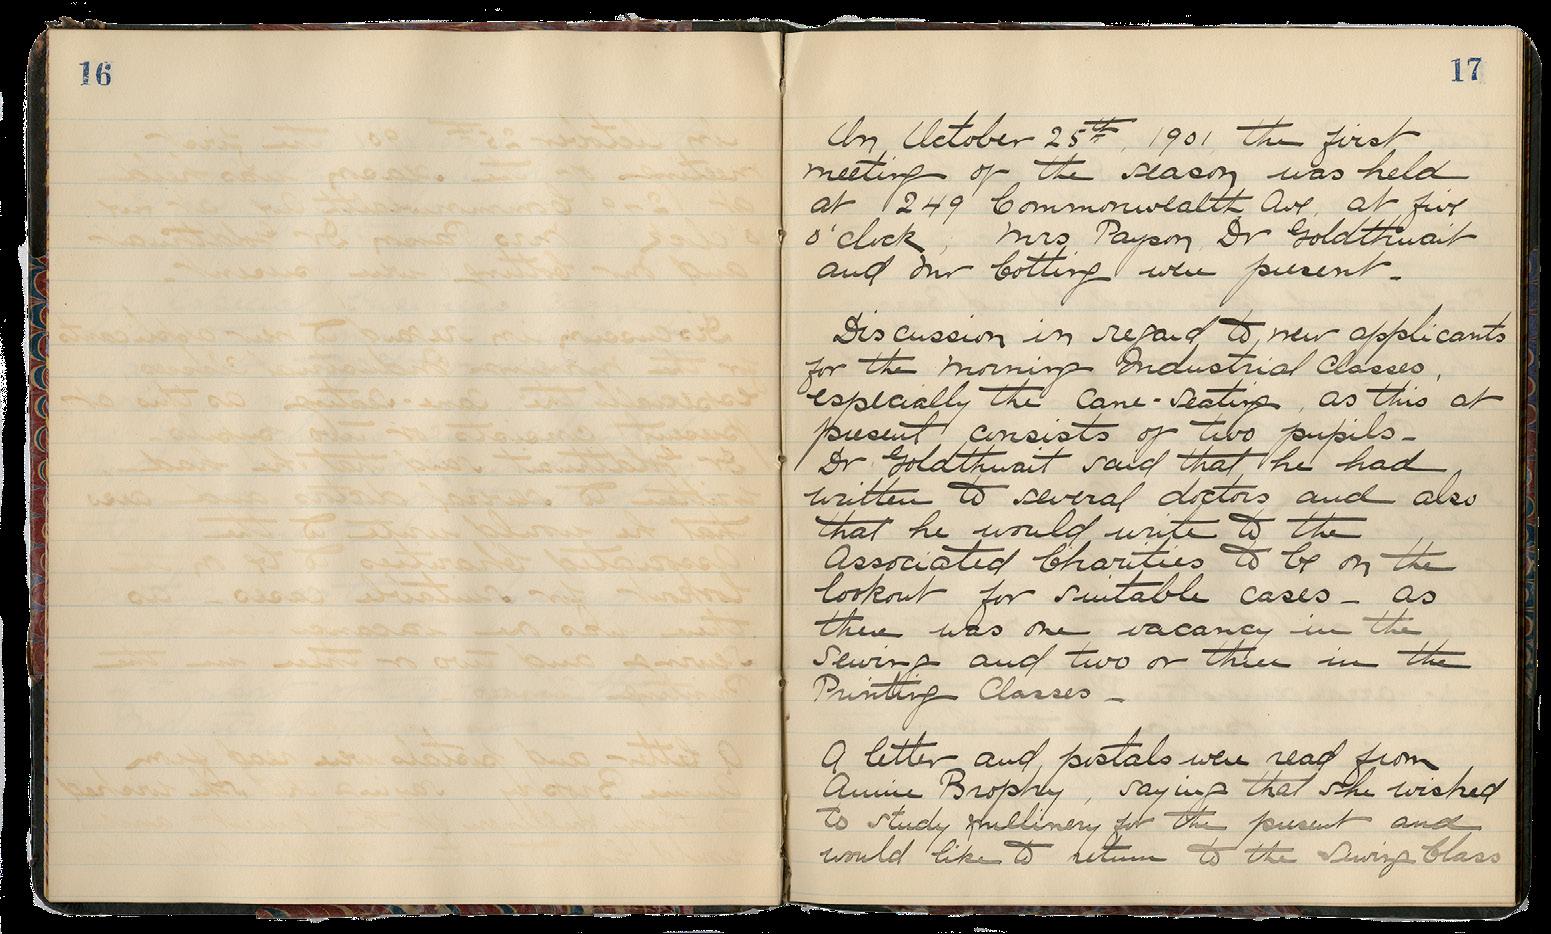 16
17
On October 25th, 1901, the first
meeting of the season was held
at 249 Commonwealth Ave, at five
o'clock, Mrs Payson, Dr Goldthwait
and Mr Cotting were present -
Discussion in regard to new applicants
for the Morning Industrial Classes,
especially the Cane-seating, as this at
present consists of two pupils -
Dr Goldthwait said that he had
written to several doctors and also
that he would write to the
Associated Charities to be on the
lookout for suitable cases - as
there was one vacancy in the
Sewing and two or three in the
Printing Classes -
A letter and postals were read from
Annie Brophy, saying that she wished
to study millinery for the present and
would like to return to the Sewing Class